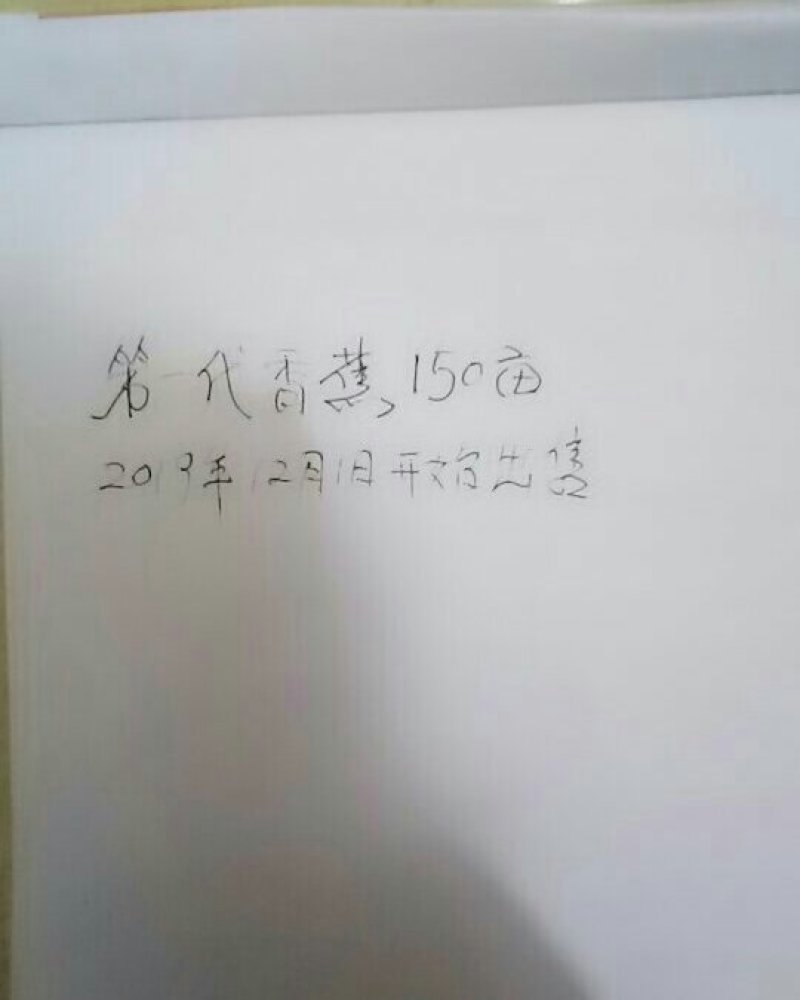 第一代香蕉,150亩
2019年12月1日开始出售